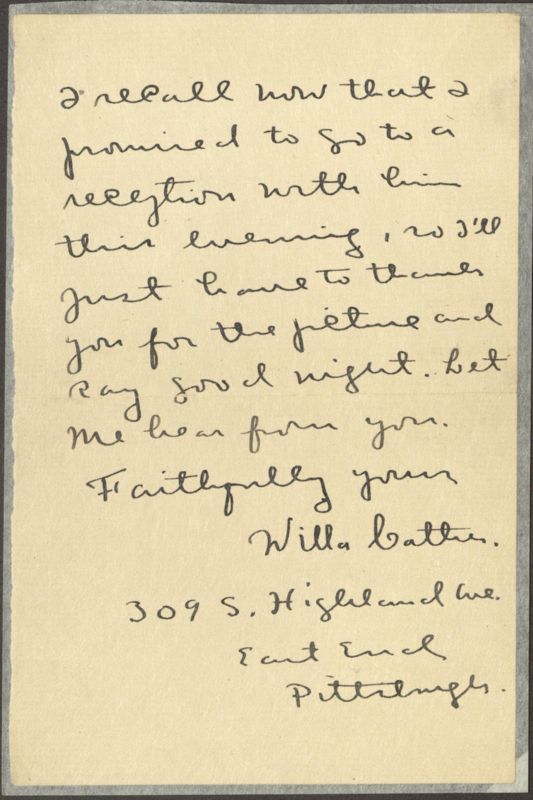 I recall now that I
promised to go to a
reception with him
this evening, so I'll
just have to thank
you for the picture and
say good night. Let
me hear from you.
Faithfully yours
Willa Cather.
309 S. Highland Ave.
East End
Pittsburgh.